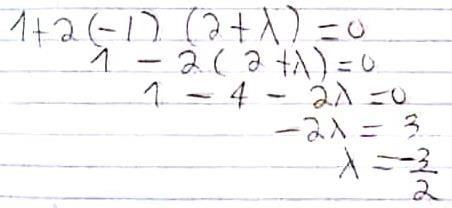 1+2(-1) (2+λ)=0
1 - 2(2+λ)=0
1 - 4 - 2λ=0
-2λ = 3
λ = -3/2